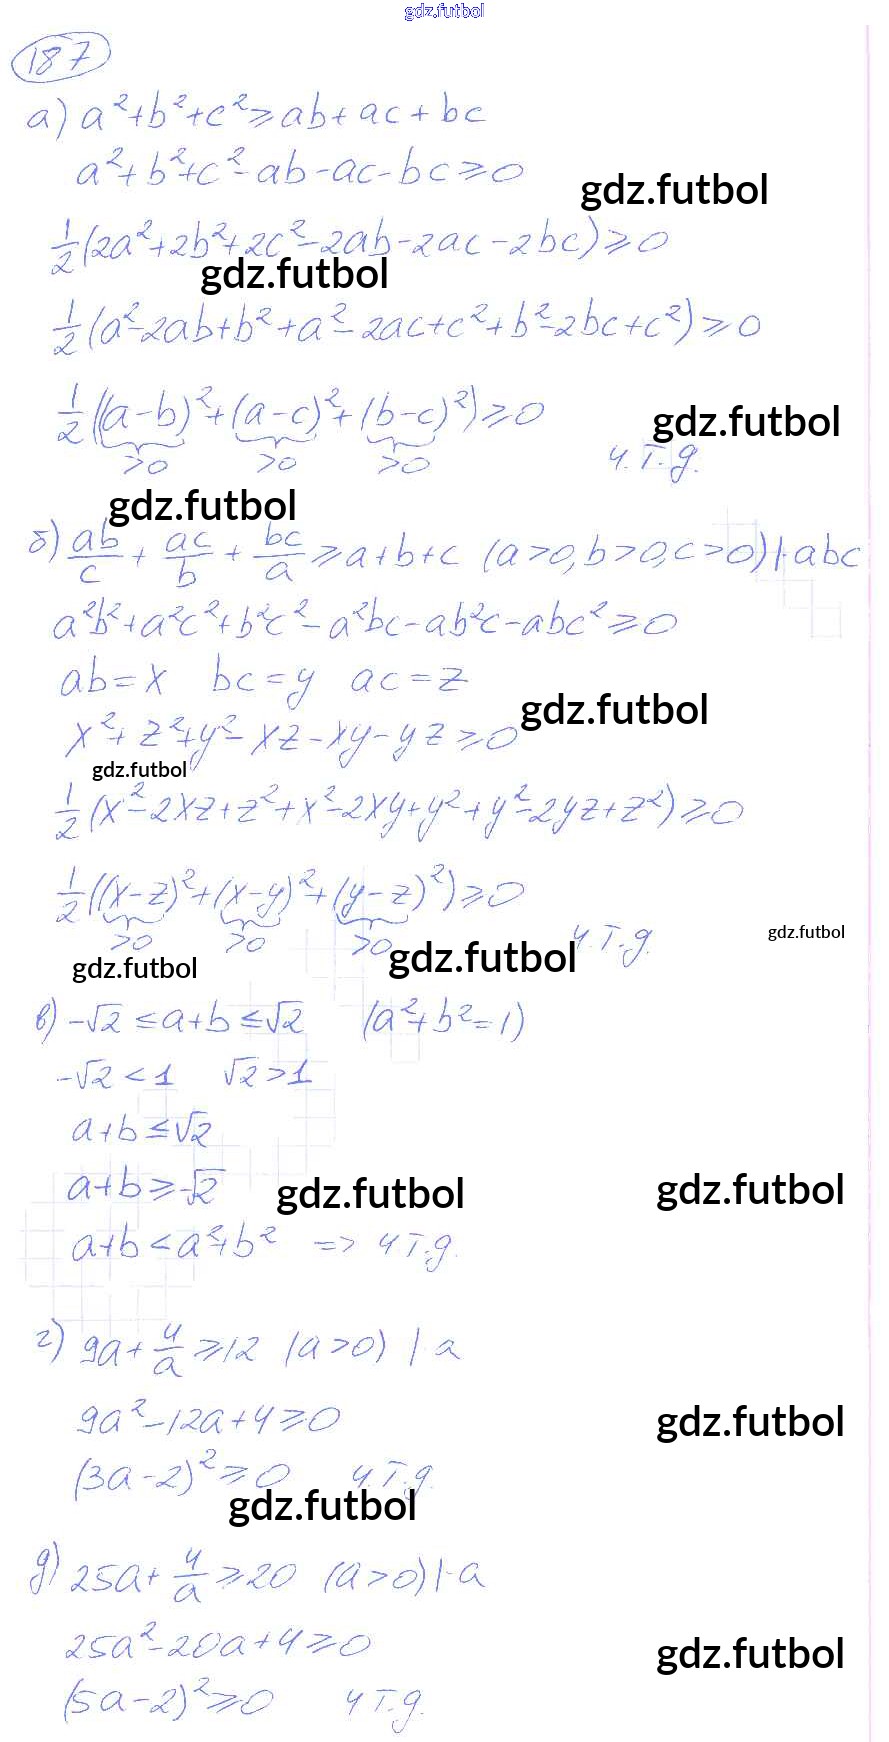 gdz.futbol
187
а) a²+b²+c²≥ab+ac+bc
a²+b²+c²-ab-ac-bc≥0
gdz.futbol
1/2(2a²+2b²+2c²-2ab-2ac-2bc)≥0
gdz.futbol
1/2(a²-2ab+b²+a²-2ac+c²+b²-2bc+c²)≥0
1/2((a-b)²+(a-c)²+(b-c)²)≥0
gdz.futbol
>0 >0 >0 ч.т.д.
gdz.futbol
б) ab/c + ac/b + bc/a ≥a+b+c (a>0,b>0,c>0)|·abc
a²b²+a²c²+b²c²-a²bc-ab²c-abc²≥0
ab=x bc=y ac=z
gdz.futbol
x²+z²+y²-xz-xy-yz≥0
gdz.futbol
1/2(x²-2xz+z²+x²-2xy+y²+y²-2yz+z²)≥0
1/2((x-z)²+(x-y)²+(y-z)²)≥0
>0 >0 >0 ч.т.д.
gdz.futbol
gdz.futbol
gdz.futbol
в) -√2 ≤a+b≤√2 (a²+b²=1)
-√2<1 √2>1
a+b≤√2
a+b≥-√2
gdz.futbol
gdz.futbol
a+b<a²+b² => ч.т.д.
г) 9a+4/a≥12 (a>0) |·a
9a²-12a+4≥0
gdz.futbol
(3a-2)²≥0 ч.т.д.
gdz.futbol
д) 25a+4/a≥20 (a>0)|·a
25a²-20a+4≥0
gdz.futbol
(5a-2)²≥0 ч.т.д.